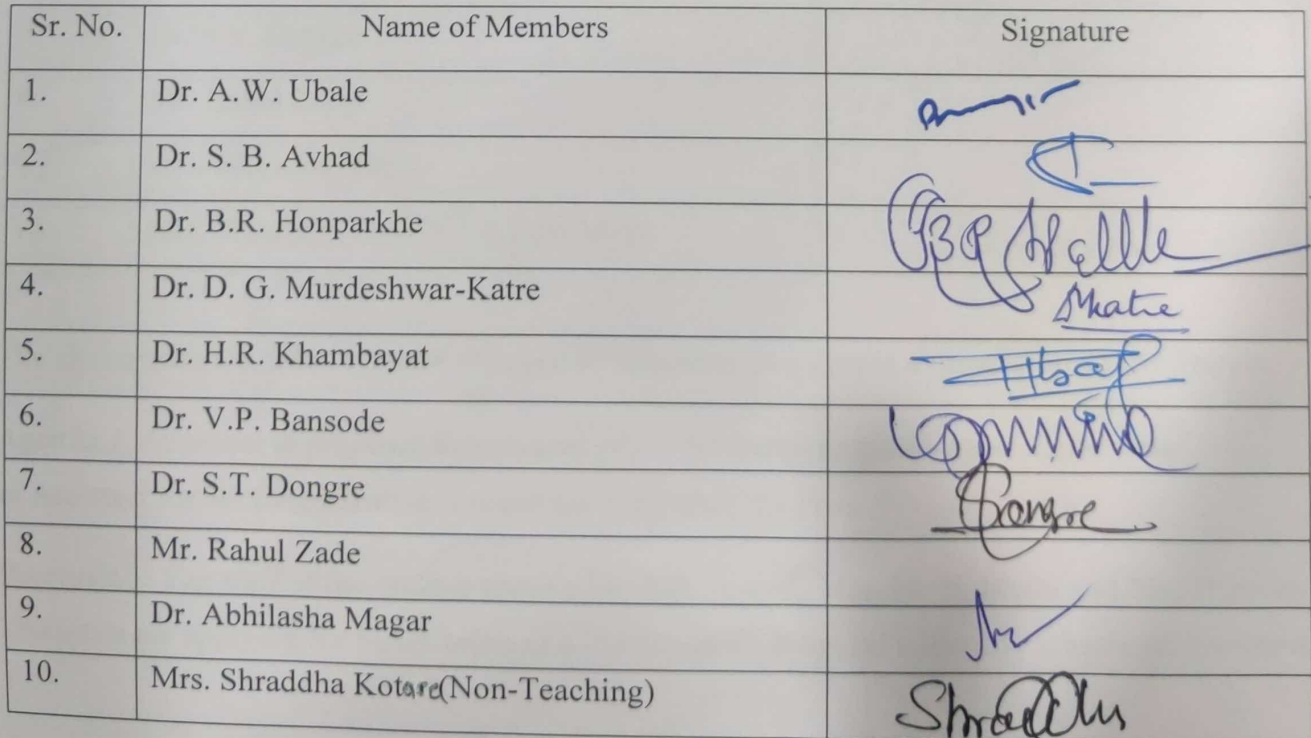 Sr. No. Name of Members Signature
1. Dr. A.W. Ubale
2. Dr. S. B. Avhad
3. Dr. B.R. Honparkhe
4. Dr. D. G. Murdeshwar-Katre
5. Dr. H.R. Khambayat
6. Dr. V.P. Bansode
7. Dr. S.T. Dongre Dongre
8. Mr. Rahul Zade
9. Dr. Abhilasha Magar
10. Mrs. Shraddha Kotare(Non-Teaching)